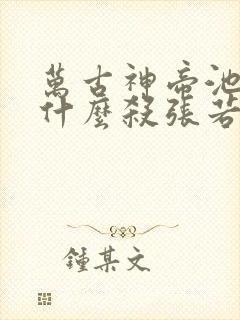 萬古神帝池
什麼殺張若
鍾某文